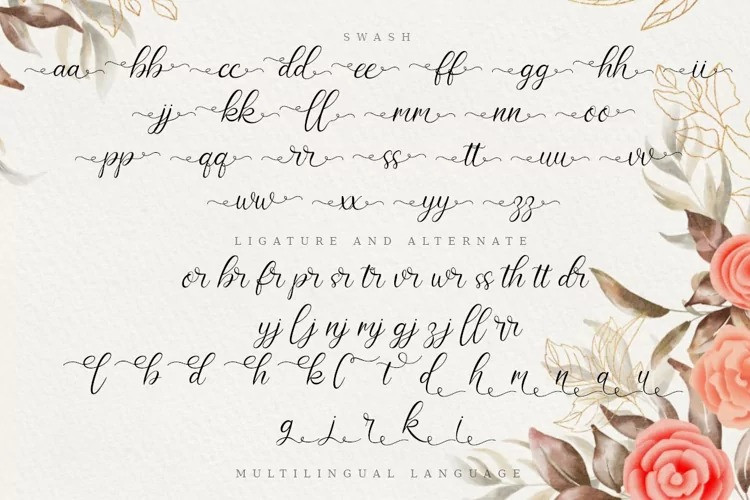 SWASH
aa bb cc dd ee ff gg hh ii
jj kk ll mm nn oo
pp qq rr ss tt uu vv
ww xx yy zz
LIGATURE AND ALTERNATE
or br fr pr sr tr vr wr ss th tt dr
yj lj nj mj gj zj ll rr
l b d h k l t d h m n a u
g j r k i
MULTILINGUAL LANGUAGE